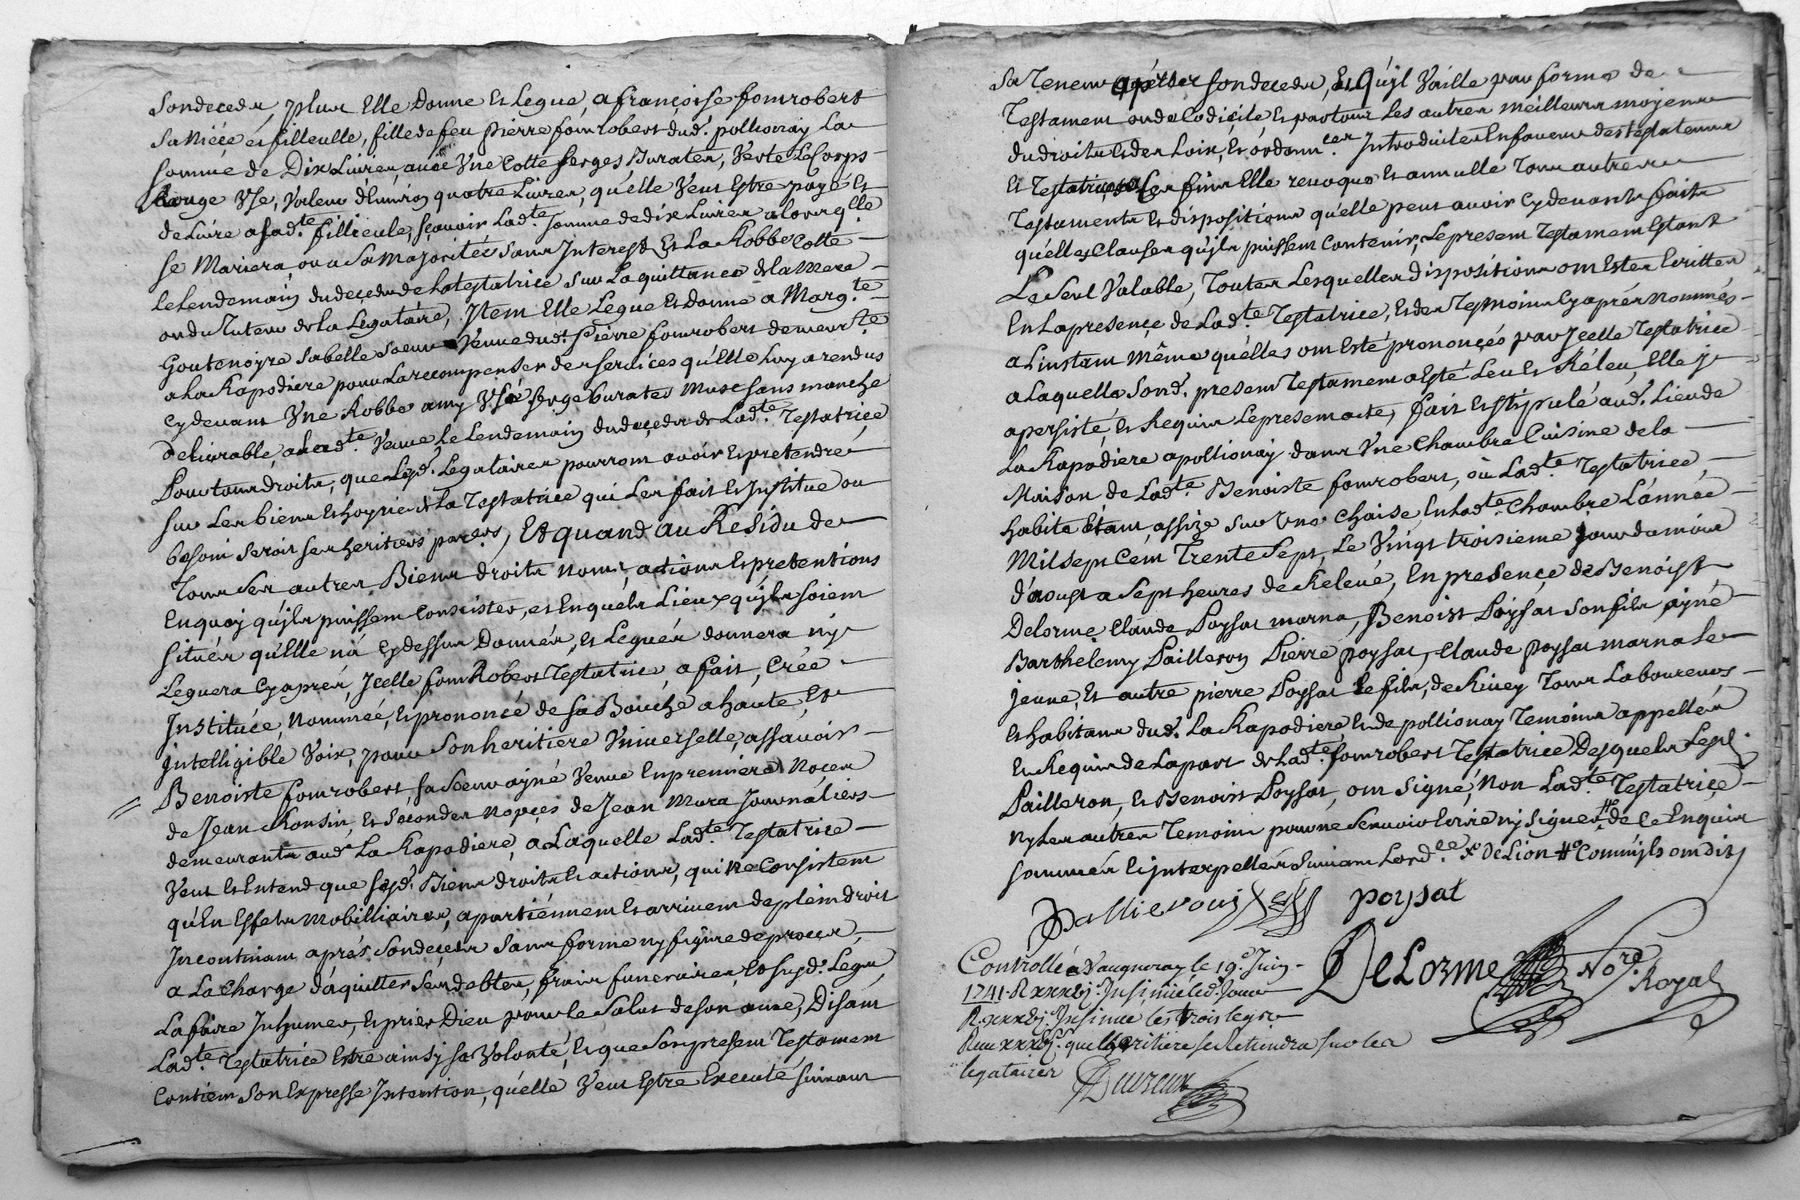 Sondeceda, plus Elle Donne et Legue, a françoise fonrobert
Sa Niéce et filleulle, fille de feu pierre fonrobert dud. pollionay La
Somme de Dix Livres, avec Une Cotte Serges Burates, Verte Le Corps
Rouge Usé, Valeur d'Environ quatre Livres, qu'elle Veut Estre payé et
delivré a Sad.te fillieule, sçavoir Lad.te Somme de dix Livres alors q.lle
Se Mariera, ou a Sa Majorité, Sans Interest, et La Robbe Cotte
Le Lendemain du deçeds de La testatrice Sur La quittance de la Mere
ou du Tuteur de la Legataire, Item Elle Legue et Donne a Marg.te
Goutenoyre Sa belle Soeur Veuve dudt Pierre fonrobert demeur.te
a La Rapodiere pour La recompenser des Services qu'Elle Luy a rendus
Cydevant Une Robbe a my Usé Serge burates Musc Sans manche
Delivrable, a Lad.te Veuve, Le Lendemain du deçeds de Lad.te Testatrice
Pour tous droits, que Lesd. Legataires pourront avoir et pretendre
Sur Les biens et hoyrie de La Testatrice qui Les fait et Institue ou
besoin Seroit Ses heritiers par.ers, Et quand au Residu de
Tous Ses autres Biens droits noms, actions et pretentions
En quoy qu'ils puissent Consister, et En quels Lieux qu'ils soient
Situés qu'Elle n'a Cydessus Donnés, et Legués donnera ny
Leguera Cyaprés, Icelle fonRobert Testatrice, a fait, Créé
Instituée, Nommée, et prononcé de Sa Bouche a haute, Et
Intelligible Voix, pour Son heritiere Universelle, assavoir
Benoiste fonrobert, Sa Soeur ayné Veuve En premieres Noces
de Jean Ronsin, et Secondes Nopces de Jean Mura Journaliers
demeurants aud. La Rapodiere, a Laquelle Lad.te Testatrice
Veut et Entend que Sesd. Biens droits et actions, qui Ne Consistent
qu'En Effets Mobilliaires, apartiennent et arrivent de plein droit
Incontinant aprés Son deçeds Sans forme ny figure de proces,
a La Charge d'aquitter Ses debtes, frais funeraires, Et Susd. Legs,
La faire Inhumer, et prier Dieu pour le Salut de Son ame, Disant
Lad.te Testatrice Estre ainsy Sa Volonté, et que Son present Testament
Contient Son Expresse Intention, qu'elle Veut Estre Executé Suivant
Sa Teneur aprés Son deceda, et qu'il Vaille par forme de
Testament ou de Codicile et par tous Les autres meilleurs moyens
du droit et des Loix, et ordonn.ces Introduites En faveur des testateurs
Et Testatrices, A Ces fins Elle revoque et annulle Tous autres
Testaments et dispositions qu'elle peut avoir Cydevants faits
quelles Clauses qu'ils puissent Contenir, Le present Testament Estant
Le Seul Valable, Toutes Lesquelles dispositions ont Esté Ecrittes
En La presençe de Lad.te Testatrice, et des Tesmoins Cyaprés Nommés
a Linstant Même qu'elles ont Esté prononçés par Icelle Testatrice
a Laquelle Sond. present Testament a Esté Leu et Réleu, Elle y
a persisté, et Requis Le present acte, fait et Stipulé aud. Lieu de
La Rapodiere a pollionay dans Une Chambre Cuisine de la
Maison de Lad.te Benoiste fonrobert, où Lad.te Testatrice,
habite Etant assize Sur Une Chaise, En Lad.te Chambre L'année
Mil Sept Cent Trente Sept, Le Vingt troisieme Jour du mois
d'aoust a Sept heures de Relevé, En presençe de Benoist
Delorme, Claude Poysat marna, Benoist Poysat Son fils ayné
Barthelemy Pailleron Pierre poysat, Claude poysat marna Le
Jeune, Et autre pierre Poysat Le fils, de Rivey Tous Laboureurs
et habitans dud. La Rapodiere et de pollionay Temoins appellés
Et Requis de La part de Lad.te fonrobert Testatrice Desquels Lesd.
Pailleron, et Benoist Poysat, ont Signé, Non Lad.te Testatrice
Ny Les autres Temoins pour ne Scavoir Ecrire ny Signer, # de Ce Enquis
Sommés et interpellés Suivant Lesd. # Comm'ils ont dit,
poysat
DeLorme No.re Royal
Controllé a Vaugneray le 19.e Juin
1741. R xxxvj. Insinué led. Jour
R xxxvj. Insinué les trois legs
que Lheritiere Se Retiendra Sur les
legataires